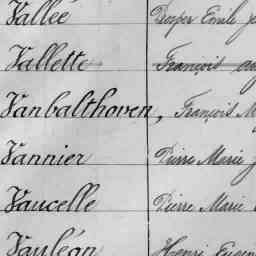 Vallée Prosper Emile
Vallette François
Vanbalthoven, François
Vannier Pierre Marie
Vaucelle Pierre Marie
Vauléon Henri Eugène